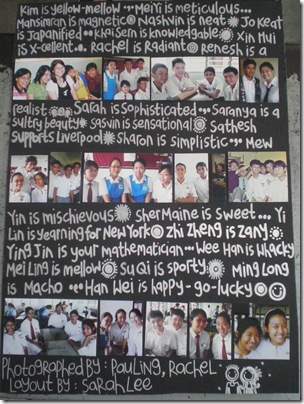 Kim is yellow-mellow ... Mei Yi is meticulous...
Mansimran is magnetic Nashvin is neat Jo Keat
is Japanified ... Kkai Sern is knowledgable Xin Hui
is X-cellent... Rachel is Radiant Renesh is a
realist Sarah is Sophisticated ... Saranya is a
sultry beauty Sasvin is sensational Sathesh
supports Liverpool Sharon is simplistic ... Mew
Yin is mischievous Shermaine is sweet... Yi
Lin is yearning for New York Zhi Zheng is zany
Ying Jin is your mathematician ... Wee Han is whacky
Mei Ling is mellow Su Qi is sporty Ming Long
is Macho ... Han Wei is happy-go-lucky
Photographed By : Pauling, Rachel
Layout By : Sarah Lee